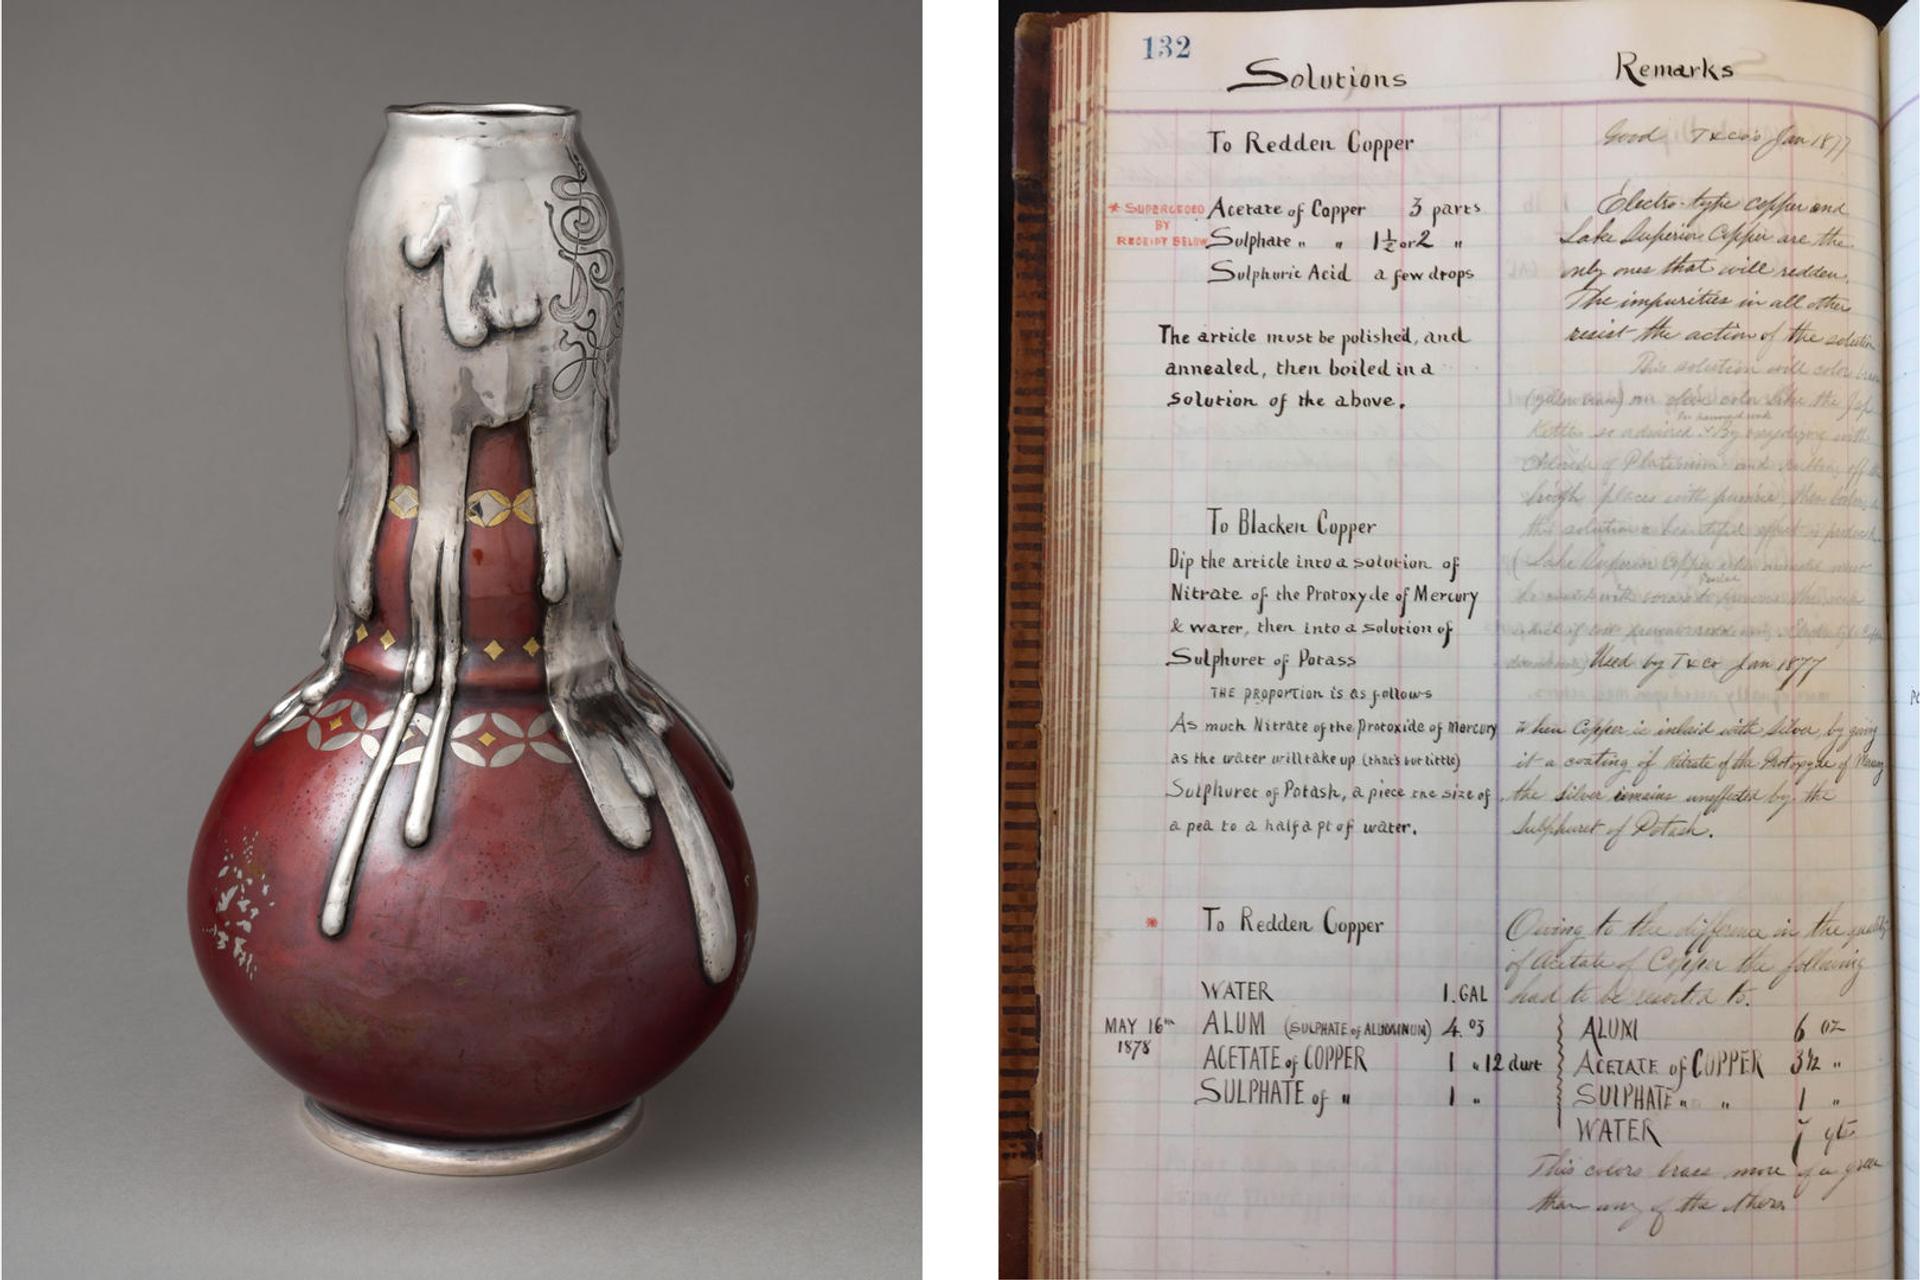 132
Solutions
Remarks
To Redden Copper
* SUPERCEDED
BY
RECEIPT BELOW
Acetate of Copper 3 parts
Sulphate " " 1 1/2 or 2 "
Sulphuric Acid a few drops
The article must be polished, and
annealed, then boiled in a
solution of the above.
Good T & Co's Jan 1877
Electro-type copper and
Lake Superior Copper are the
only ones that will redden.
The impurities in all other
resist the action of the solution
This solution will color
(yellow brass) an olive color like the
Kettle so admired. By oxydizing with
Chloride of Platinum and rubbing off
places with pumice, then
this solution a beautiful effect is produced
(Lake Superior Copper
Used by T & Co Jan 1877
To Blacken Copper
Dip the article into a solution of
Nitrate of the Protoxyde of Mercury
& water, then into a solution of
Sulphuret of Potass
THE PROPORTION is as follows
As much Nitrate of the Protoxide of Mercury
as the water will take up (that's but little)
Sulphuret of Potash, a piece the size of
a pea to a half a pt of water.
When Copper is inlaid with silver, by giving
it a coating of Nitrate of the Protoxyde of
the silver remains unaffected by the
Sulphuret of Potash.
* To Redden Copper
WATER 1. GAL
MAY 16th
1878
ALUM (SULPHATE of ALUMINUM) 4. oz
ACETATE of COPPER 1 " 12 dwt
SULPHATE of " 1 "
Owing to the difference in the quality
of Acetate of Copper the following
had to be resorted to.
ALUM 6 oz
ACETATE of COPPER 3 1/2 "
SULPHATE " " 1 "
WATER 7 qts
This colors brass more of a green
than any of the others